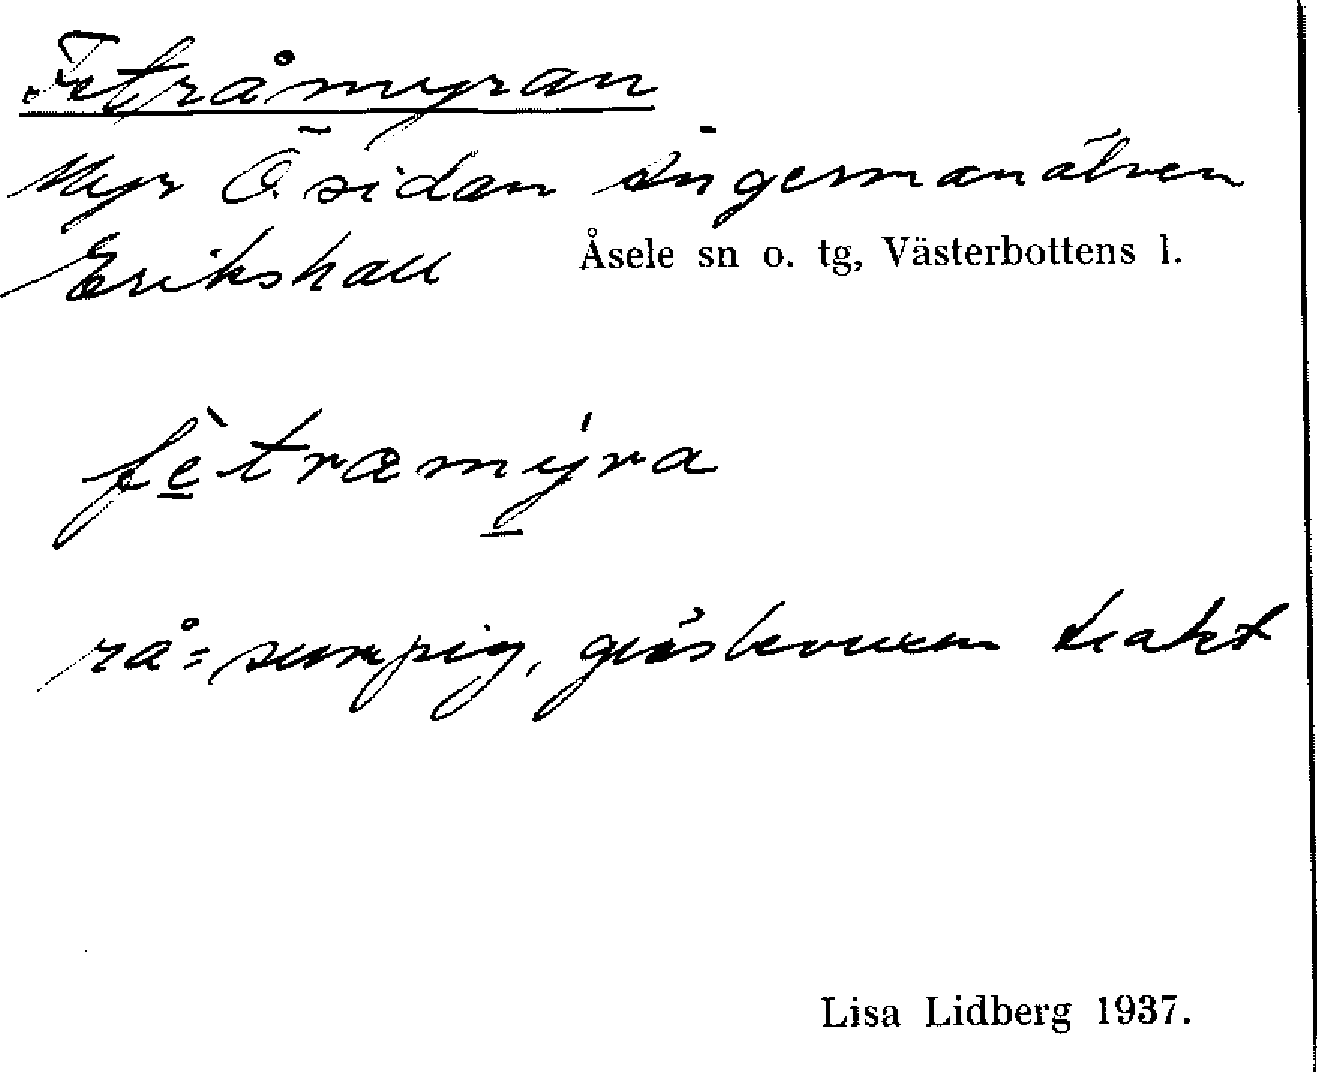 Feträmyran
Myr Ö. sidan Ångermanälven
Erikshall
Åsele sn o. tg, Västerbottens l.
fètræmýra
rå = sumpig, gräsbevuxen trakt
Lisa Lidberg 1937.